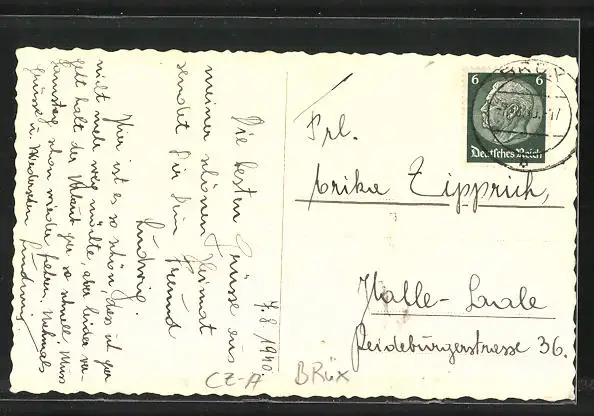 7.8.1940.
Die besten Grüsse aus
meiner schönen Heimat
sendet Dir Dein Freund
Ludwig.
Hier ist es so schön dass ich gar
nicht mehr weg möchte, aber leider ver-
geht halt der Urlaub gar so schnell, muss
Samstag schon wieder fahren. Nochmals
Grüsse u. Wiedersehen Ludwig
Frl.
Erika Zipprich,
Halle-Saale
Reideburgerstrasse 36.
6 6
Deutsches Reich
BRÜX
CZ-A BRÜX